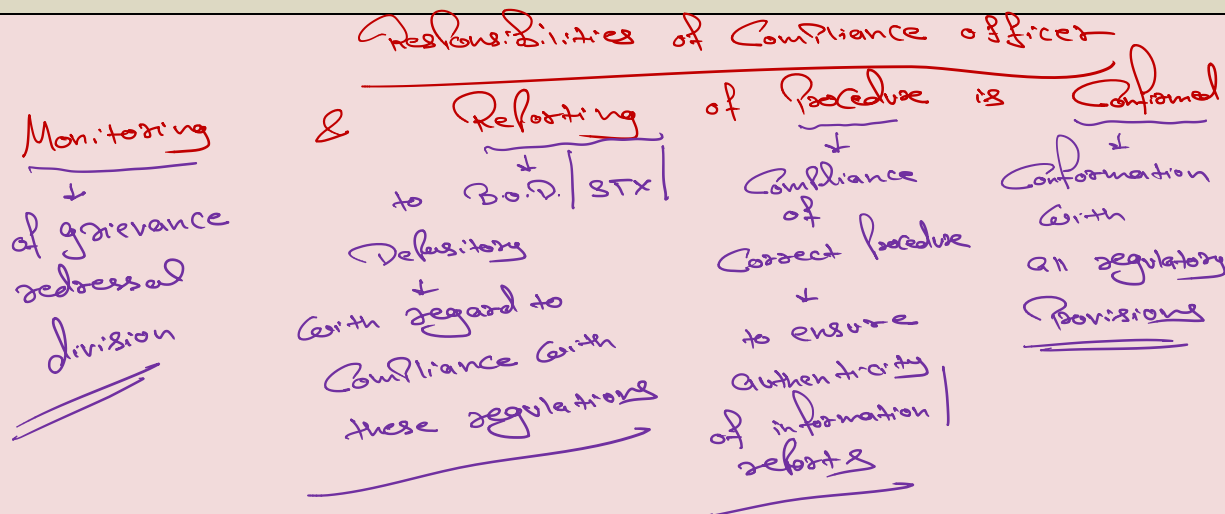 Responsibilities of Compliance officer
Monitoring & Reporting of Procedure is Confirmed
of grievance
redressal
division
to B.O.D. | STX |
Depository
with regard to
Compliance with
these regulations
Compliance
of
Correct procedure
to ensure
authenticity
of information
reports
Conformation
with
all regulatory
Provisions